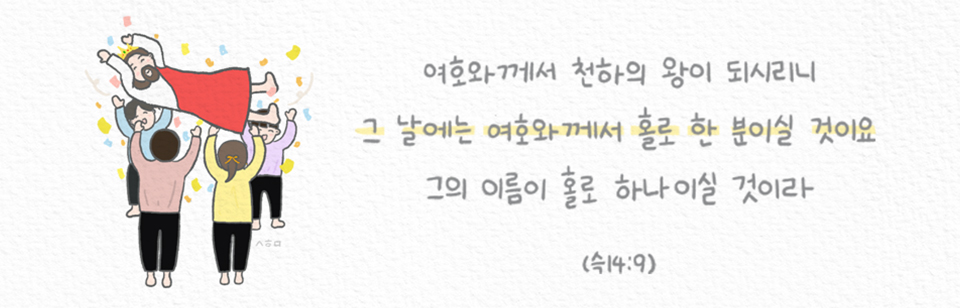 여호와께서 천하의 왕이 되시리니
그 날에는 여호와께서 홀로 한 분이실 것이요
그의 이름이 홀로 하나이실 것이라
(슥14:9)
ㅅㅎㅁ